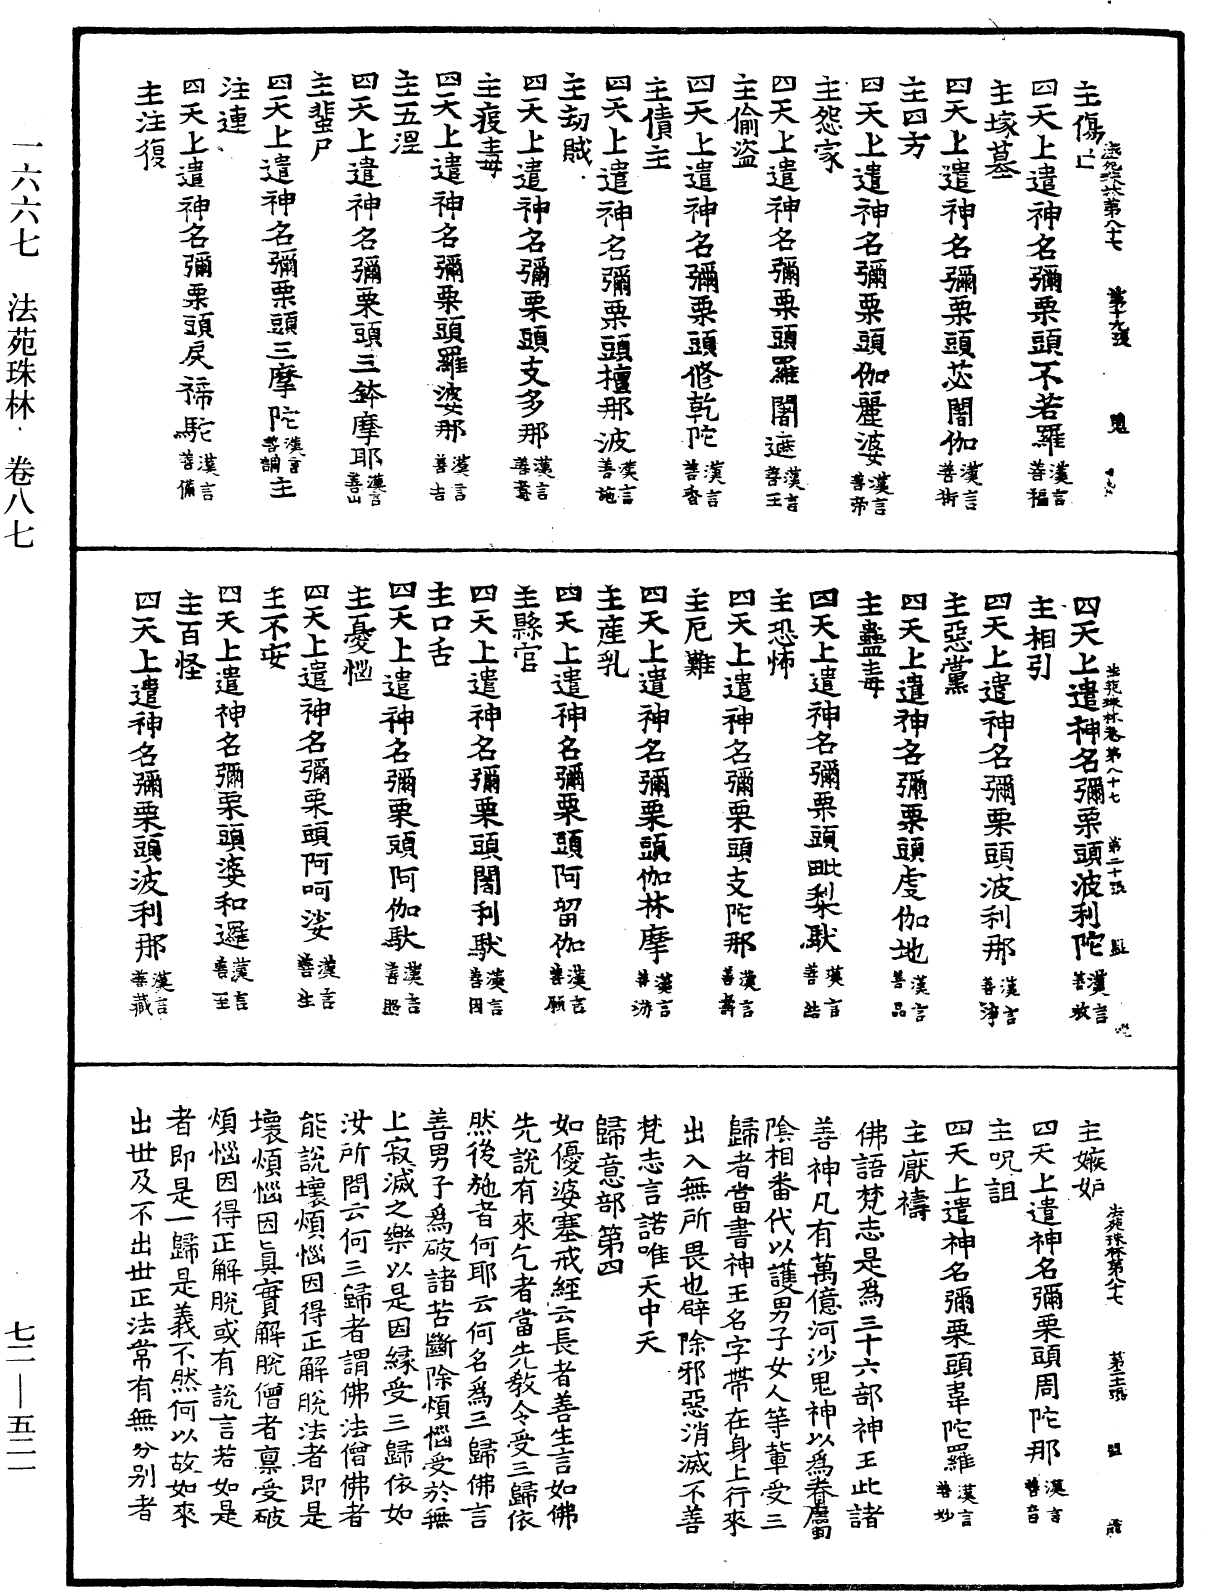 一六六七　法苑珠林　卷八七
七二—五二一
主傷亡
四天上遣神名彌栗頭不若羅漢言善福
主塚墓
四天上遣神名彌栗頭苾闍伽漢言善術
主四方
四天上遣神名彌栗頭伽麗婆漢言善帝
主怨家
四天上遣神名彌栗頭羅闍遮漢言善王
主偷盜
四天上遣神名彌栗頭修乾陀漢言善香
主債主
四天上遣神名彌栗頭檀那波漢言善施
主劫賊
四天上遣神名彌栗頭支多那漢言善意
主疫毒
四天上遣神名彌栗頭羅婆那漢言善吉
主五溫
四天上遣神名彌栗頭三鉢摩耶漢言善山
主蜚尸
四天上遣神名彌栗頭三摩陀漢言善調主
注連
四天上遣神名彌栗頭戾禘馱漢言善備
主注復
四天上遣神名彌栗頭波利陀漢言善敬
主相引
四天上遣神名彌栗頭波利那漢言善淨
主惡黨
四天上遣神名彌栗頭虔伽地漢言善品
主蠱毒
四天上遣神名彌栗頭毗梨馱漢言善結
主恐怖
四天上遣神名彌栗頭支陀那漢言善壽
主厄難
四天上遣神名彌栗頭伽林摩漢言善游
主產乳
四天上遣神名彌栗頭阿留伽漢言善願
主縣官
四天上遣神名彌栗頭闍利馱漢言善因
主口舌
四天上遣神名彌栗頭阿伽馱漢言善照
主憂惱
四天上遣神名彌栗頭阿呵娑漢言善生
主不安
四天上遣神名彌栗頭婆和邏漢言善至
主百怪
四天上遣神名彌栗頭波利那漢言善藏
主嫉妒
四天上遣神名彌栗頭周陀那漢言善音
主呪詛
四天上遣神名彌栗頭韋陀羅漢言善妙
主厭禱
佛語梵志是為三十六部神王此諸
善神凡有萬億河沙鬼神以為眷屬
陰相番代以護男子女人等輩受三
歸者當書神王名字帶在身上行來
出入無所畏也辟除邪惡消滅不善
梵志言諾唯天中天
歸意部第四
如優婆塞戒經云長者善生言如佛
先說有來乞者當先教令受三歸依
然後施者何耶云何名為三歸佛言
善男子為破諸苦斷除煩惱受於無
上寂滅之樂以是因緣受三歸依如
汝所問云何三歸者謂佛法僧佛者
能說壞煩惱因得正解脫法者即是
壞煩惱因真實解脫僧者稟受破
煩惱因得正解脫或有說言若如是
者即是一歸是義不然何以故如來
出世及不出世正法常有無分別者